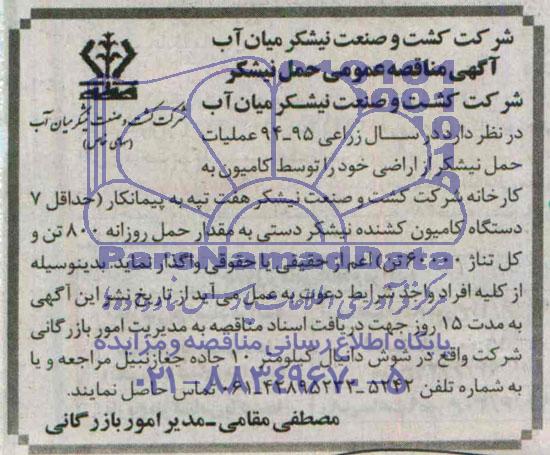 شرکت کشت و صنعت نیشکر میان آب
آگهی مناقصه عمومی حمل نیشکر
شرکت کشت و صنعت نیشکر میان آب
شرکت کشت و صنعت نیشکر میان آب
(سهامی خاص)
در نظر دارد در سال زراعی ۹۵-۹۴ عملیات
حمل نیشکر از اراضی خود را توسط کامیون به
کارخانه شرکت کشت و صنعت نیشکر هفت تپه به پیمانکار (حداقل ۷
دستگاه کامیون کشنده نیشکر دستی به مقدار حمل روزانه ۸۰۰ تن و
کل تناژ ۶۰۰۰۰ تن) اعم از حقیقی یا حقوقی واگذار نماید. بدینوسیله
از کلیه افراد واجد شرایط دعوت به عمل می آید از تاریخ نشر این آگهی
به مدت ۱۵ روز جهت دریافت اسناد مناقصه به مدیریت امور بازرگانی
شرکت واقع در شوش دانیال کیلومتر ۱۰ جاده جفازنبیل مراجعه و یا
به شماره تلفن ۵۲۴۲-۴۲۸۹۵۲۳۲-۰۶۱ تماس حاصل نمایند.
مصطفی مقامی-مدیر امور بازرگانی
ParsNamadData
پایگاه اطلاع رسانی مناقصه و مزایده
۰۲۱-۸۸۳۴۹۶۷۰-۵